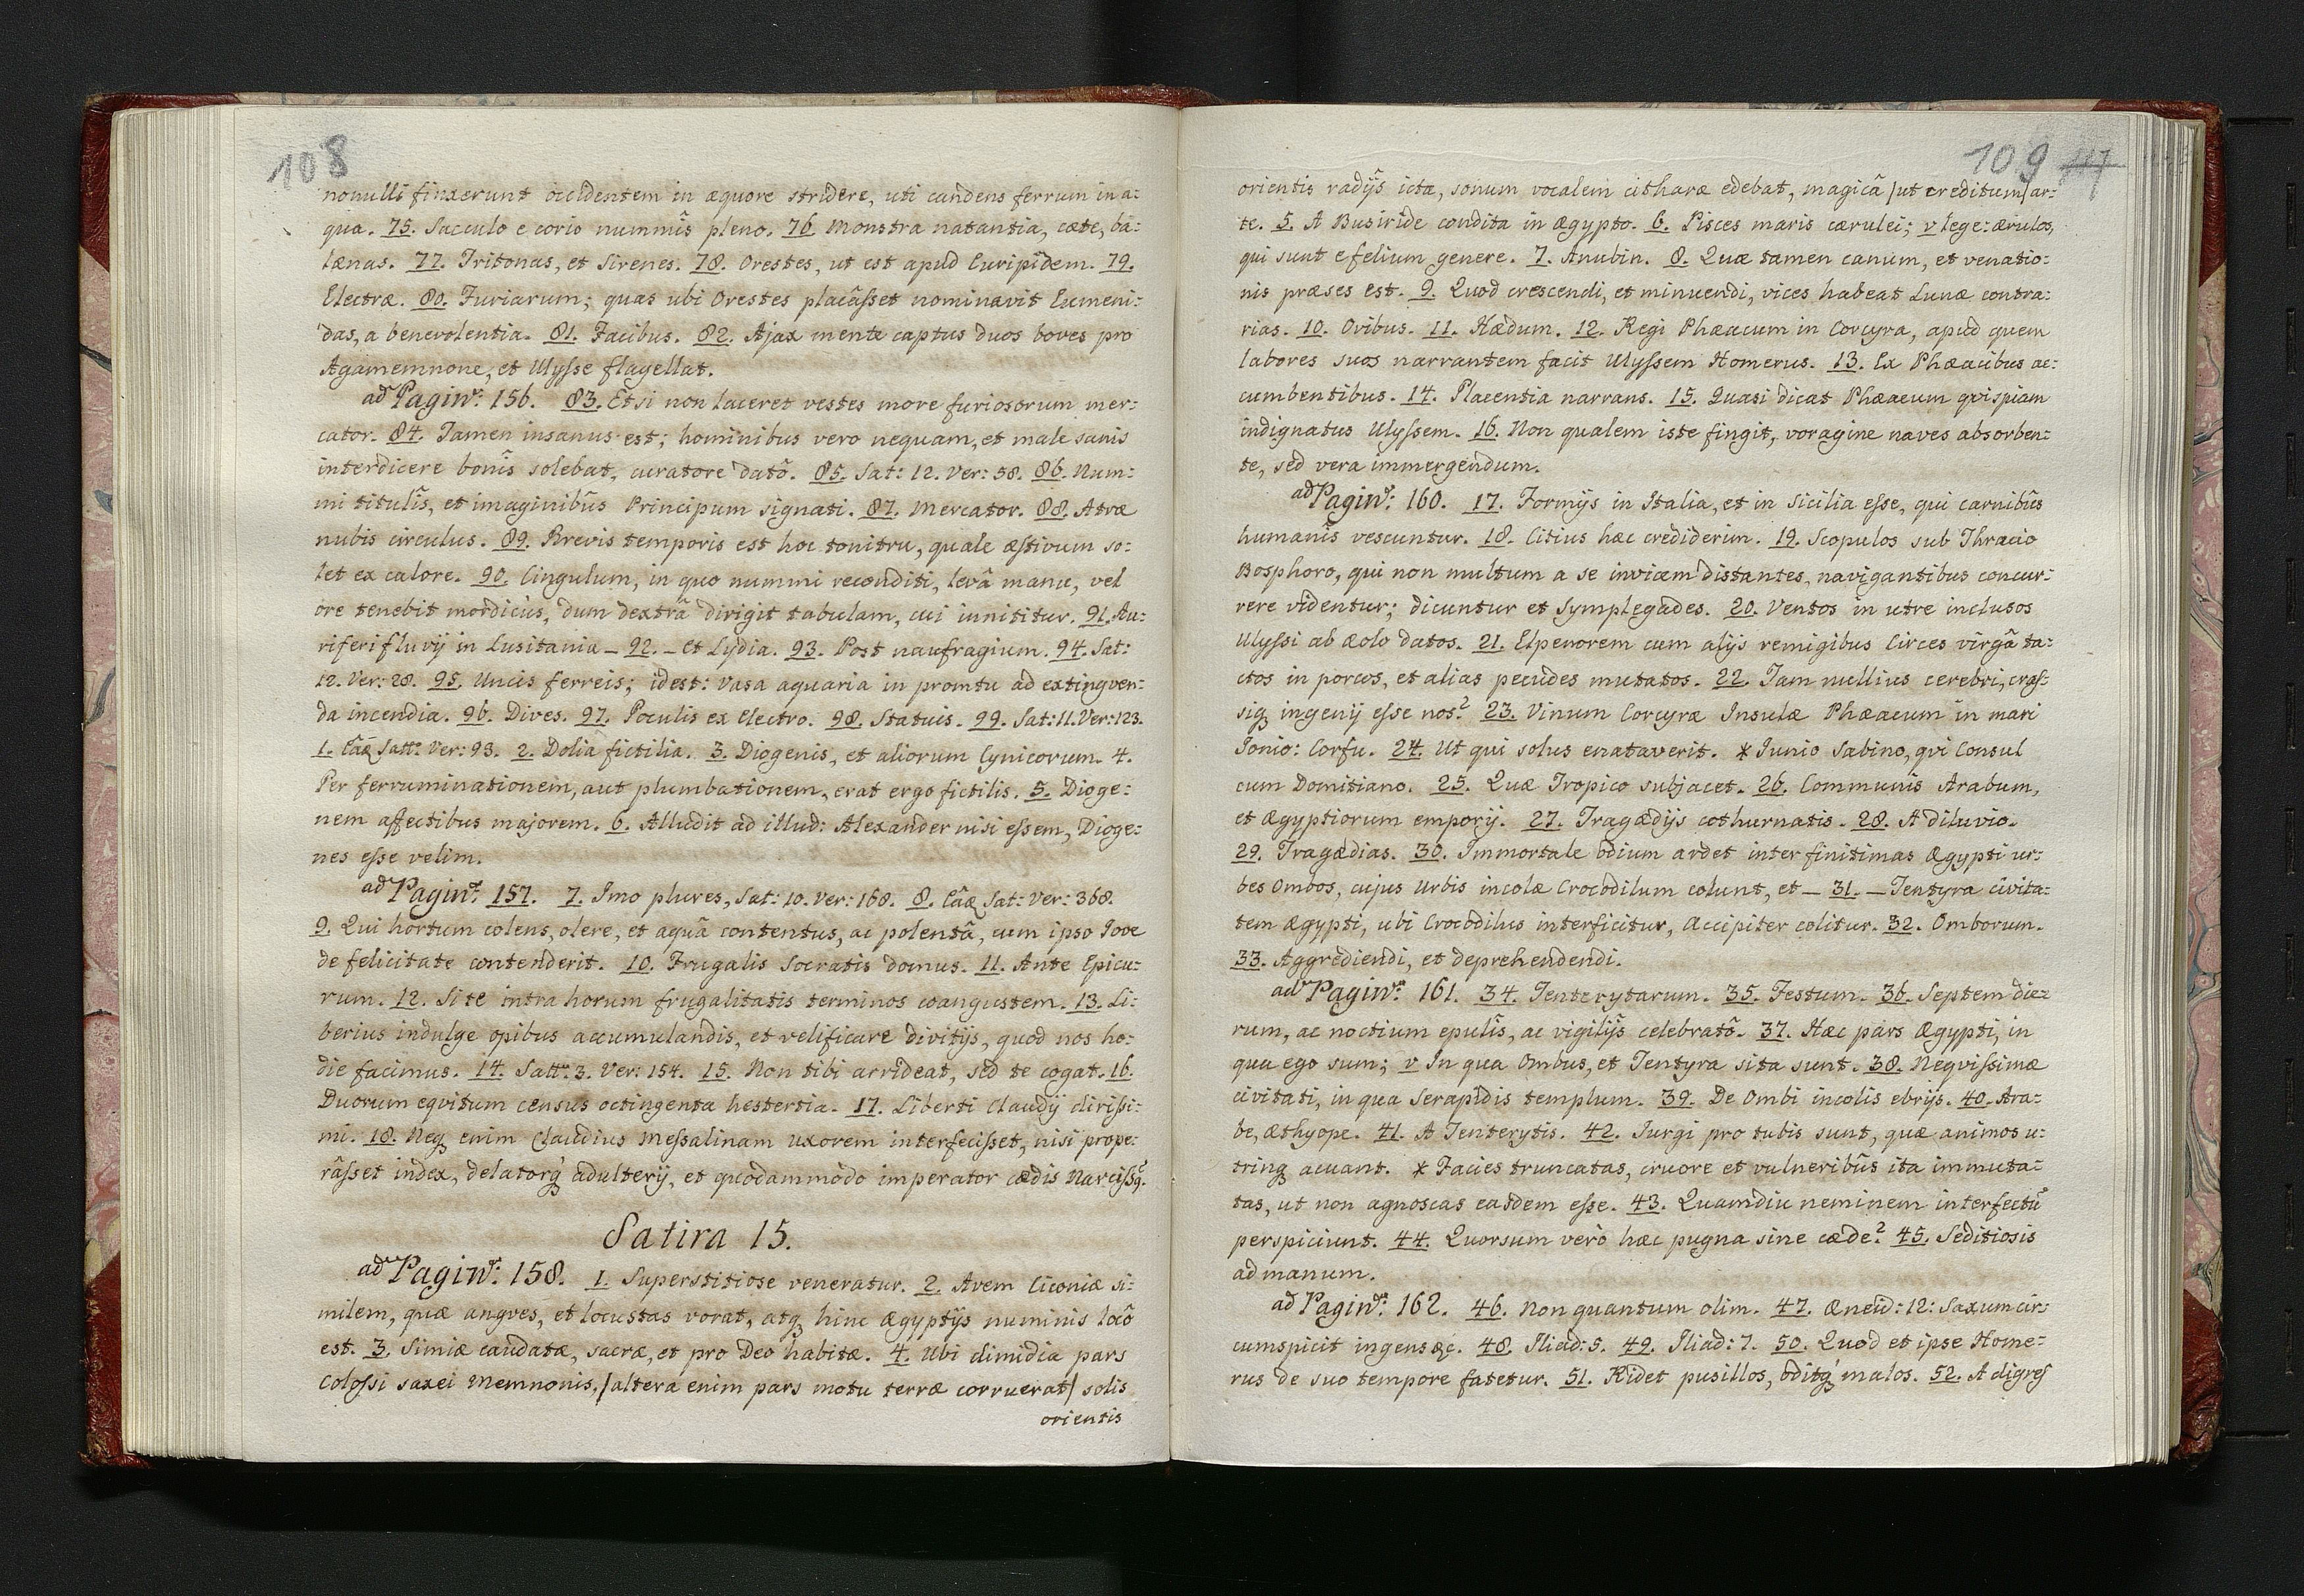 108
nonulli finxerunt occidentem in æquore stridere, uti candens ferrum in a:
qua. 75. Sacculo e corio nummîs pleno. 76. Monstra natantia, cæte, ba:
lænas. 77. Tritonas, et Sirenes. 78. Orestes, ut est apud Euripidem. 79.
Electræ. 80. Furiarum; quas ubi Orestes placâsset nominavit Eumeni:
das, a benevolentia. 81. Facibus. 82. Ajax mente captus duos boves pro
Agamemnone, et Ulysse flagellat.
ad Pagin: 156. 83. Etsi non laceret vestes more furiosorum mer:
cator. 84. Tamen insanus est; hominibus vero nequam, et male sanis
interdicere bonîs solebat, curatore datô. 85. Sat: 12. Ver: 58. 86. Num:
mi titulîs, et imaginibûs Principum signati. 87. Mercator. 88. Atræ
nubis circulus. 89. Brevis temporis est hoc tonitru, quale æstivum so:
let ex calore. 90. Cingulum, in quo nummi reconditi, levâ manu, vel
ore tenebit mordicùs, dum dextrâ dirigit tabulam, cui innititur. 91. Au:
riferi fluvij in Lusitania – 92. – et Lydia. 93. Post naufragium. 94. Sat:
12. Ver: 28. 95. Uncis ferreis; idest: Vasa aquaria in promtu ad extingven:
da incendia. 96. Dives. 97. Poculis ex Electro. 98. Statuis. 99. Sat: 11. Ver: 123.
1. Eâq Satt: Ver: 93. 2. Dolia fictilia. 3. Diogenis, et aliorum Cynicorum. 4.
Per ferruminationem, aut plumbationem, erat ergo fictilis. 5. Dioge:
nem affectibus majorem. 6. Alludit ad illud: Alexander nisi essem, Dioge:
nes esse velim.
ad Pagin: 157. 7. Imo plures, Sat: 10. Ver: 168. 8. Eâq Sat: Ver: 368.
9. Qui hortum colens, olere, et aquâ contentus, ac polentâ, cum ipso Jove
de felicitate contenderit. 10. Frugalis Socratis domus. 11. Ante Epicu:
rum. 12. Si te intra horum frugalitatis terminos coangustem. 13. Li:
berius indulge opibus accumulandis, et velificare divitijs, quod nos ho:
die facimus. 14. Satt: 3. Ver: 154. 15. Non tibi arrideat, sed te cogat. 16.
Duorum eqvitum census octingenta hestertia. 17. Liberti Claudij dirissi:
mi. 18. Neq enim Claudius Messalinam uxorem interfecisset, nisi prope:
râsset index, delatorq adulterij, et quodammodo imperator cædis Narcissq.
Satira 15.
ad Pagin: 158. 1. Superstitiose veneratur. 2. Avem Ciconiæ si:
milem, quæ angves, et locustas vorat, atq hinc Ægyptijs numinis locô
est. 3. Simiæ caudatæ, sacræ, et pro Deo habitæ. 4. Ubi dimidia pars
Colossi saxei Memnonis, /altera enim pars motu terræ corruerat/ solis
orientis
109 117
orientis radijs icta, sonum vocalem citharæ edebat, magicâ /ut creditum/ ar:
te. 5. A Busiride condita in Ægypto. 6. Pisces maris cærulei; v lege: ærulos,
qui sunt e felium genere. 7. Anubin. 8. Quæ tamen canum, et venatio:
nis præses est. 9. Quod crescendi, et minuendi, vices habeat Lunæ contra:
rias. 10. Ovibus. 11. Hædum. 12. Regi Phæacum in Corcyra, apud quem
labores suos narrantem facit Ulyssem Homerus. 13. Ex Phæacibus ac:
cumbentibus. 14. Placentia narrans. 15. Quasi dicat Phæacum qvispiam
indignatus Ulyssem. 16. Non qualem iste fingit, voragine naves absorben:
te, sed vera immergendum.
ad Pagin: 160. 17. Formijs in Italia, et in Sicilia esse, qui carnibûs
humanîs vescuntur. 18. Citius hæc crediderim. 19. Scopulos sub Thracio
Bosphoro, qui non multum a se invicem distantes, navigantibus concur:
rere videntur; dicuntur et Symplegades. 20. Ventos in utre inclusos
Ulyssi ab Æolo datos. 21. Elpenorem cum alijs remigibus Circes virgâ ta:
ctos in porcos, et alias pecudes mutatos. 22. Tam nullius cerebri, cras:
siq ingenij esse nos? 23. Vinum Corcyræ Insulæ Phæacum in mari
Jonio: Corfu. 24. Ut qui solus enataverit. * Iunio Sabino, qvi Consul
cum Domitiano. 25. Quæ Tropico subjacet. 26. Communis Arabum,
et Ægyptiorum emporij. 27. Tragædijs cothurnatis. 28. A diluvio.
29. Tragædias. 30. Immortale odium ardet inter finitimas Ægypti ur:
bes Ombos, cujus Urbis incolæ Crocodilum colunt, et – 31. – Tentyra civita:
tem Ægypti, ubi Crocodilus interficitur, Accipiter colitur. 32. Omborum.
33. Aggrediendi, et deprehendendi.
ad Pagin: 161. 34. Tenterytarum. 35. Festum. 36. Septem die:
rum, ac noctium epulîs, ac vigilijs celebratô. 37. Hæc pars Ægypti, in
qua ego sum; v In qua Ombus, et Tentyra sita sunt. 38. Neqvissimæ
civitati, in qua Serapidis templum. 39. De Ombi incolis ebrijs. 40. Ara:
be, Æthyope. 41. A Tenterytis. 42. Jurgi pro tubis sunt, quæ animos u:
trinq acuant. * Facies truncatas, cruore et vulneribûs ita immuta:
tas, ut non agnoscas easdem esse. 43. Quamdiu neminem interfectũ
perspiciunt. 44. Quorsum verò hæc pugna sine cæde? 45. Seditiosis
ad manum.
ad Pagin: 162. 46. Non quantum olim. 47. Æneid: 12: Saxum cir:
cumspicit ingens &c. 48. Iliad: 5. 49. Iliad: 7. 50. Quod et ipse Home:
rus de suo tempore fatetur. 51. Ridet pusillos, oditq malos. 52. A digres